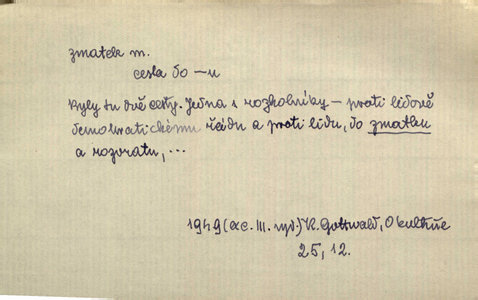 zmatek m.
cesta do –u
Byly tu dvě cesty. Jedna s rozkolníky – proti lidově
demokratickému řádu a proti lidu, do zmatku
a rozvratu, ...
1949 (ex. III. vyd.) K. Gottwald, O kultuře
25, 12.